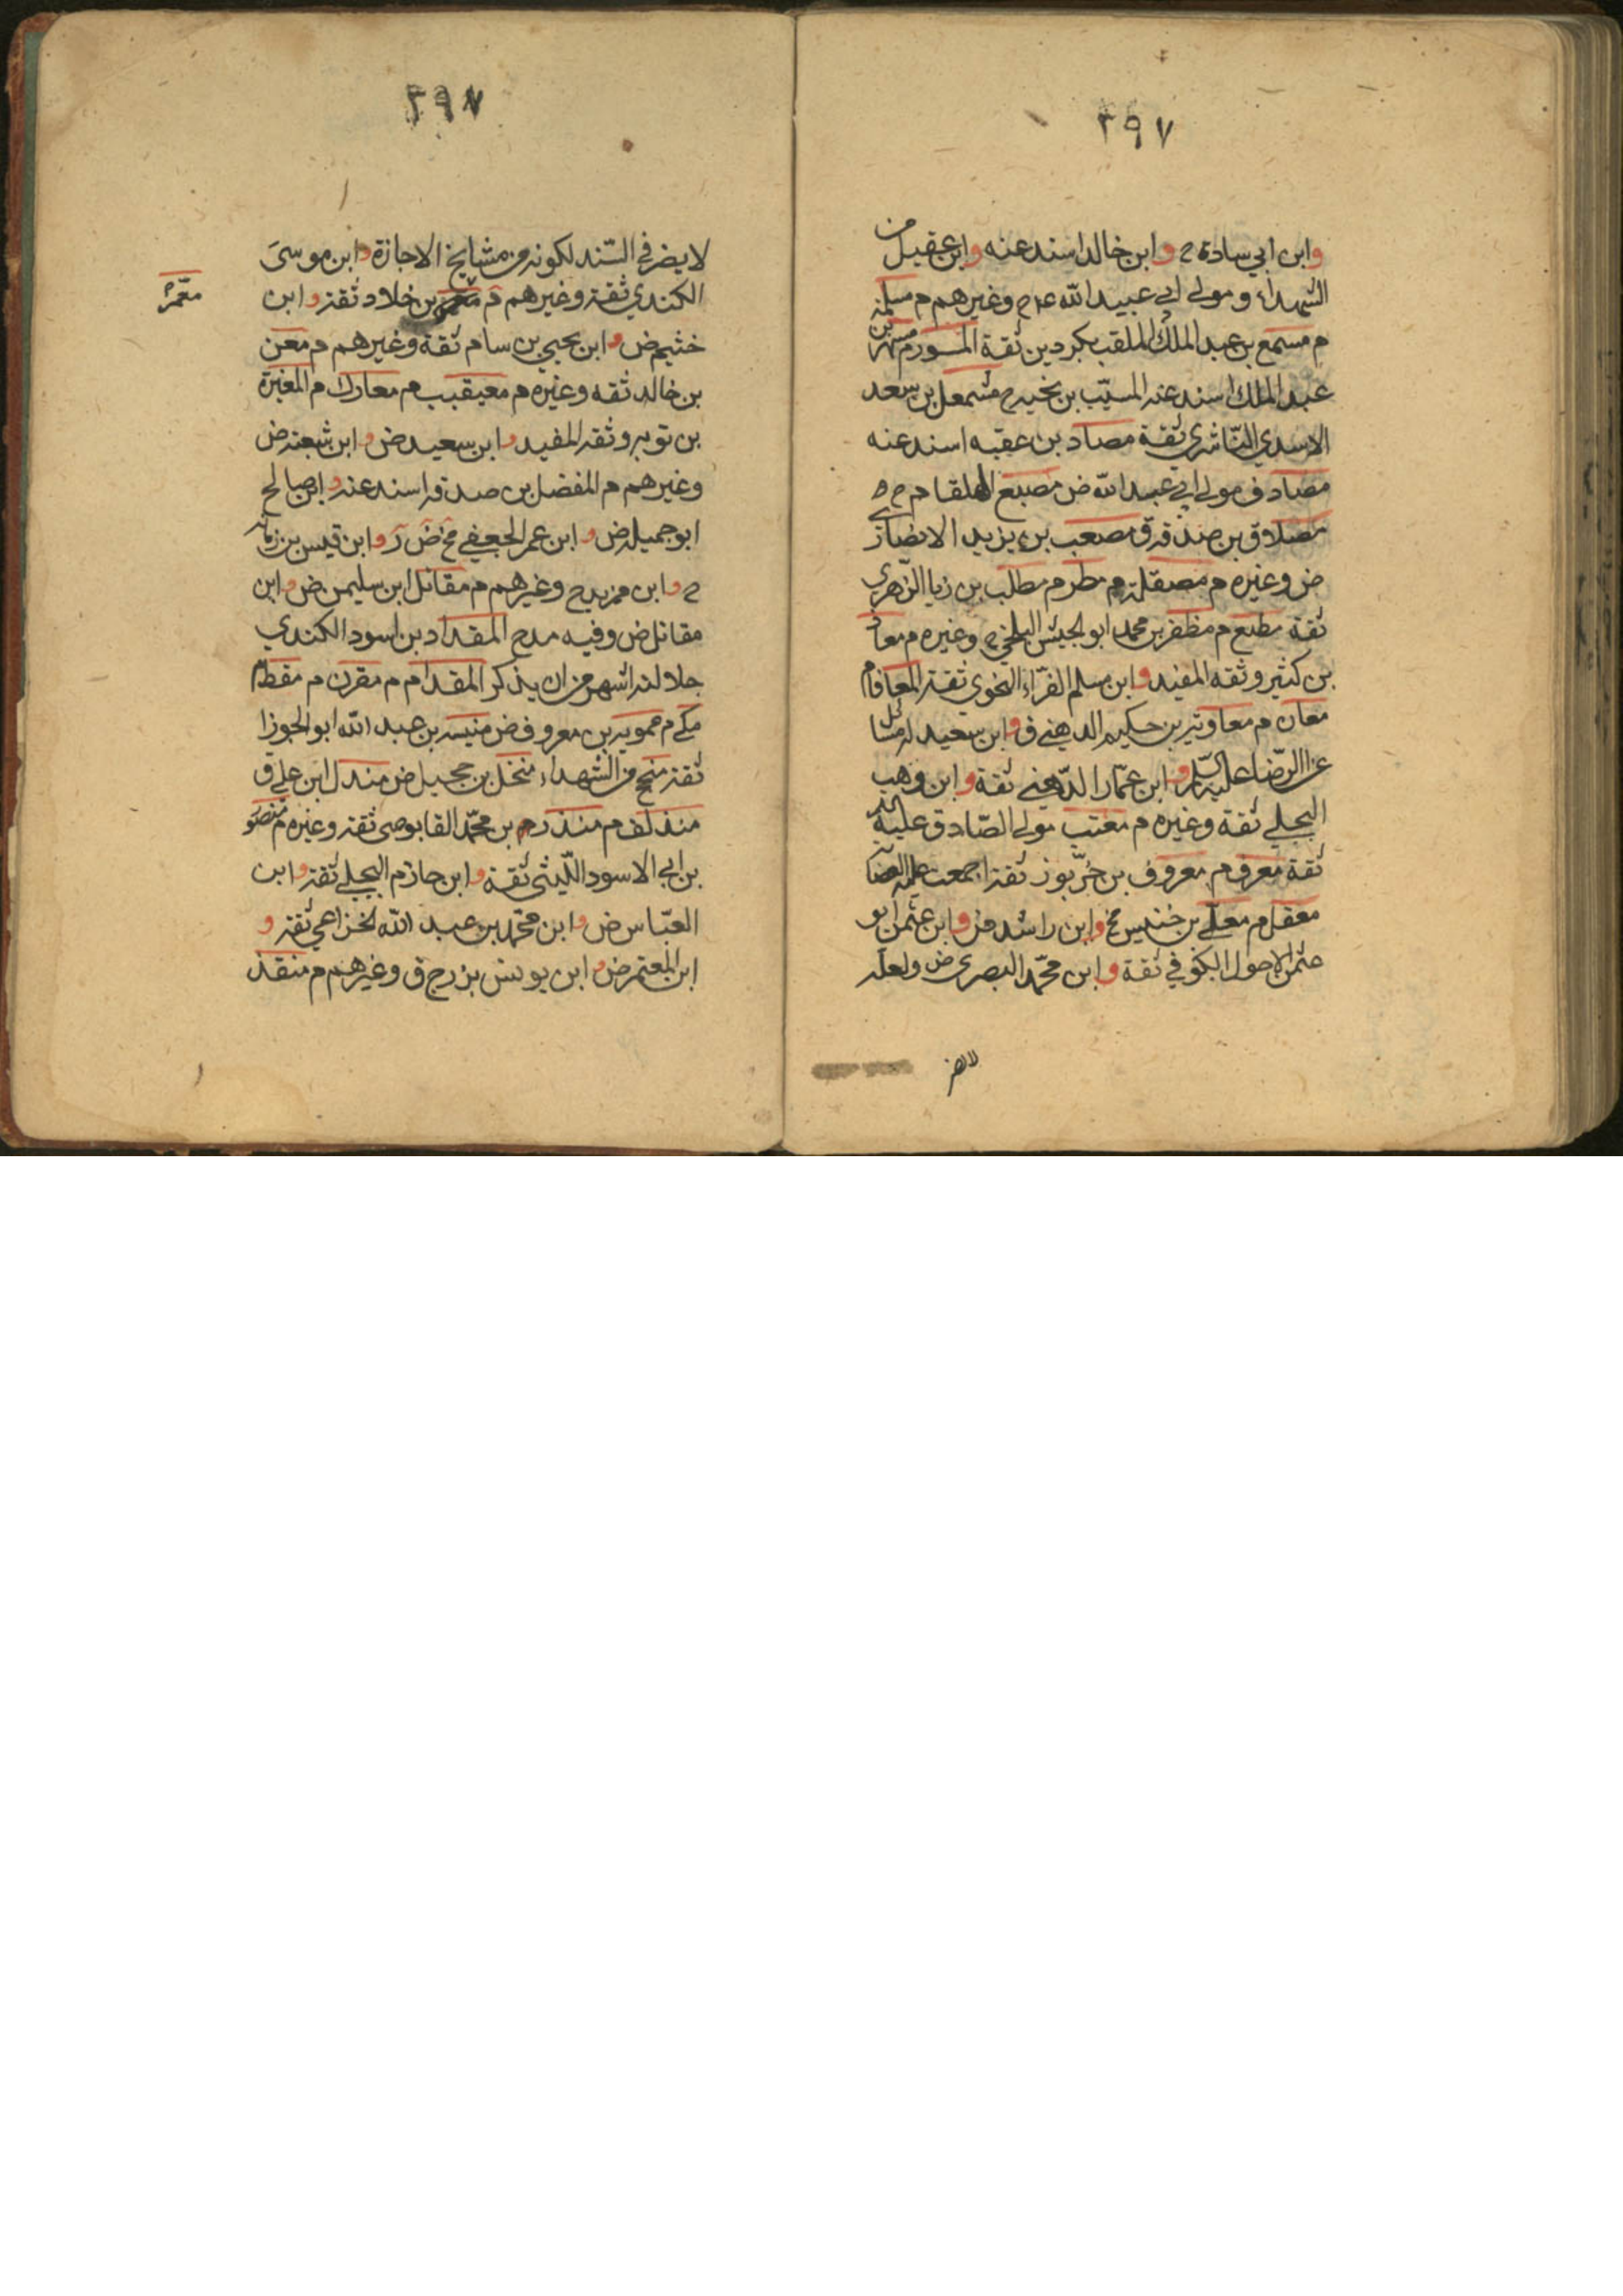 ٢٩٧
وابن ابي سادة ح وابن خالد اسند عنه وابن عقيل من
الشهداء ومولى ابي عبيد الله وغيرهم م مسلمة
م مسمع بن عبد الملك الملقب بكردين ثقة المسور م مسهر بن
عبد الملك اسند عنه المسيب بن نجبه ح مشمعل بن سعد
الاسدي الناشري ثقة مصادر بن عقبه اسند عنه
مصادف مولى ابي عبد الله ض مصبح الهلقام م
مصدق بن صدقة ق مصعب بن يزيد الانصاري
ض وغيره م مصقلة م مطر م مطلب بن زياد الزهري
ثقة مطيع م مظفر بن محمد ابو الجيش البلخي ح وغيره م معاذ
بن كثير وثقه المفيد وابن مسلم الفراء النحوي ثقة المعافا م
معان م معاوية بن حكيم الدهني ق وابن سعيد له مسائل
عن الرضا عليه السلم وابن عمار الدهني ثقة وابن وهب
البجلي ثقة وغيره م معتب مولى الصادق عليه السلم
ثقة معرف م معروف بن خربوذ ثقة اجمعت عليه العصابة
معقل م معلى بن خنيس مخ وابن راشد ض وابن عثمن ابو
عثمن الاحول الكوفي ثقة وابن محمد البصري ض ولعله
لا يضر
٢٩٧
لا يضر في السند لكونه من مشايخ الاجازة وابن موسى
الكندي ثقة وغيرهم م معمر بن خلاد ثقة وابن
معمر
خثيم ض وابن يحيى بن سام ثقة وغيرهم م معن
بن خالد ثقه وغيره م معيقيب م معارك م المغيرة
بن توبه وثقه المفيد وابن سعيد ض وابن شعبة ض
وغيرهم م المفضل بن صدقة اسند عنه وابن صالح
ابو جميله ض وابن عمر الجعفي مخ ض ر وابن قيس بن رمانه
ح وابن مزيد ح وغيرهم م مقاتل ابن سليمن ض وابن
مقاتل ض وفيه مدح المقداد بن اسود الكندي
جلالته اشهر من ان يذكر المقدام م مقرن م مقطم
مكي م ممويه بن معروف ض منبه بن عبد الله ابو الجوزا
ثقة منجح من الشهداء منخل بن جميل ض مندل ابن علي ق
منذلف م منذر م بن محمد القابوصي ثقة وغيره م منصور
بن ابي الاسود الليثي ثقة وابن حازم البجلي ثقة وابن
العباس ض وابن محمد بن عبد الله الخزاعي ثقة و
ابن المعتمر ض وابن يونس بزرج ق وغيرهم م منقذ